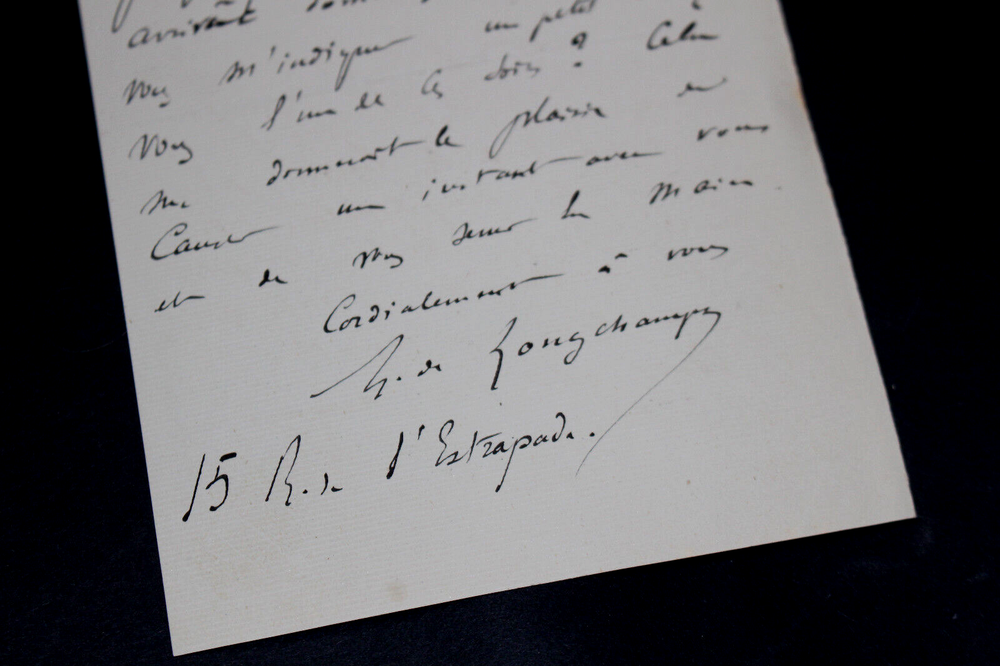 arrivant
vous m'indiquer un petit à
vous l'une de ces soirs ? Cela
me donnerait le plaisir de
Causer un instant avec vous
et de vous serrer la main
Cordialement à vous
G. de Longchamps
15 R. de l'Estrapade.